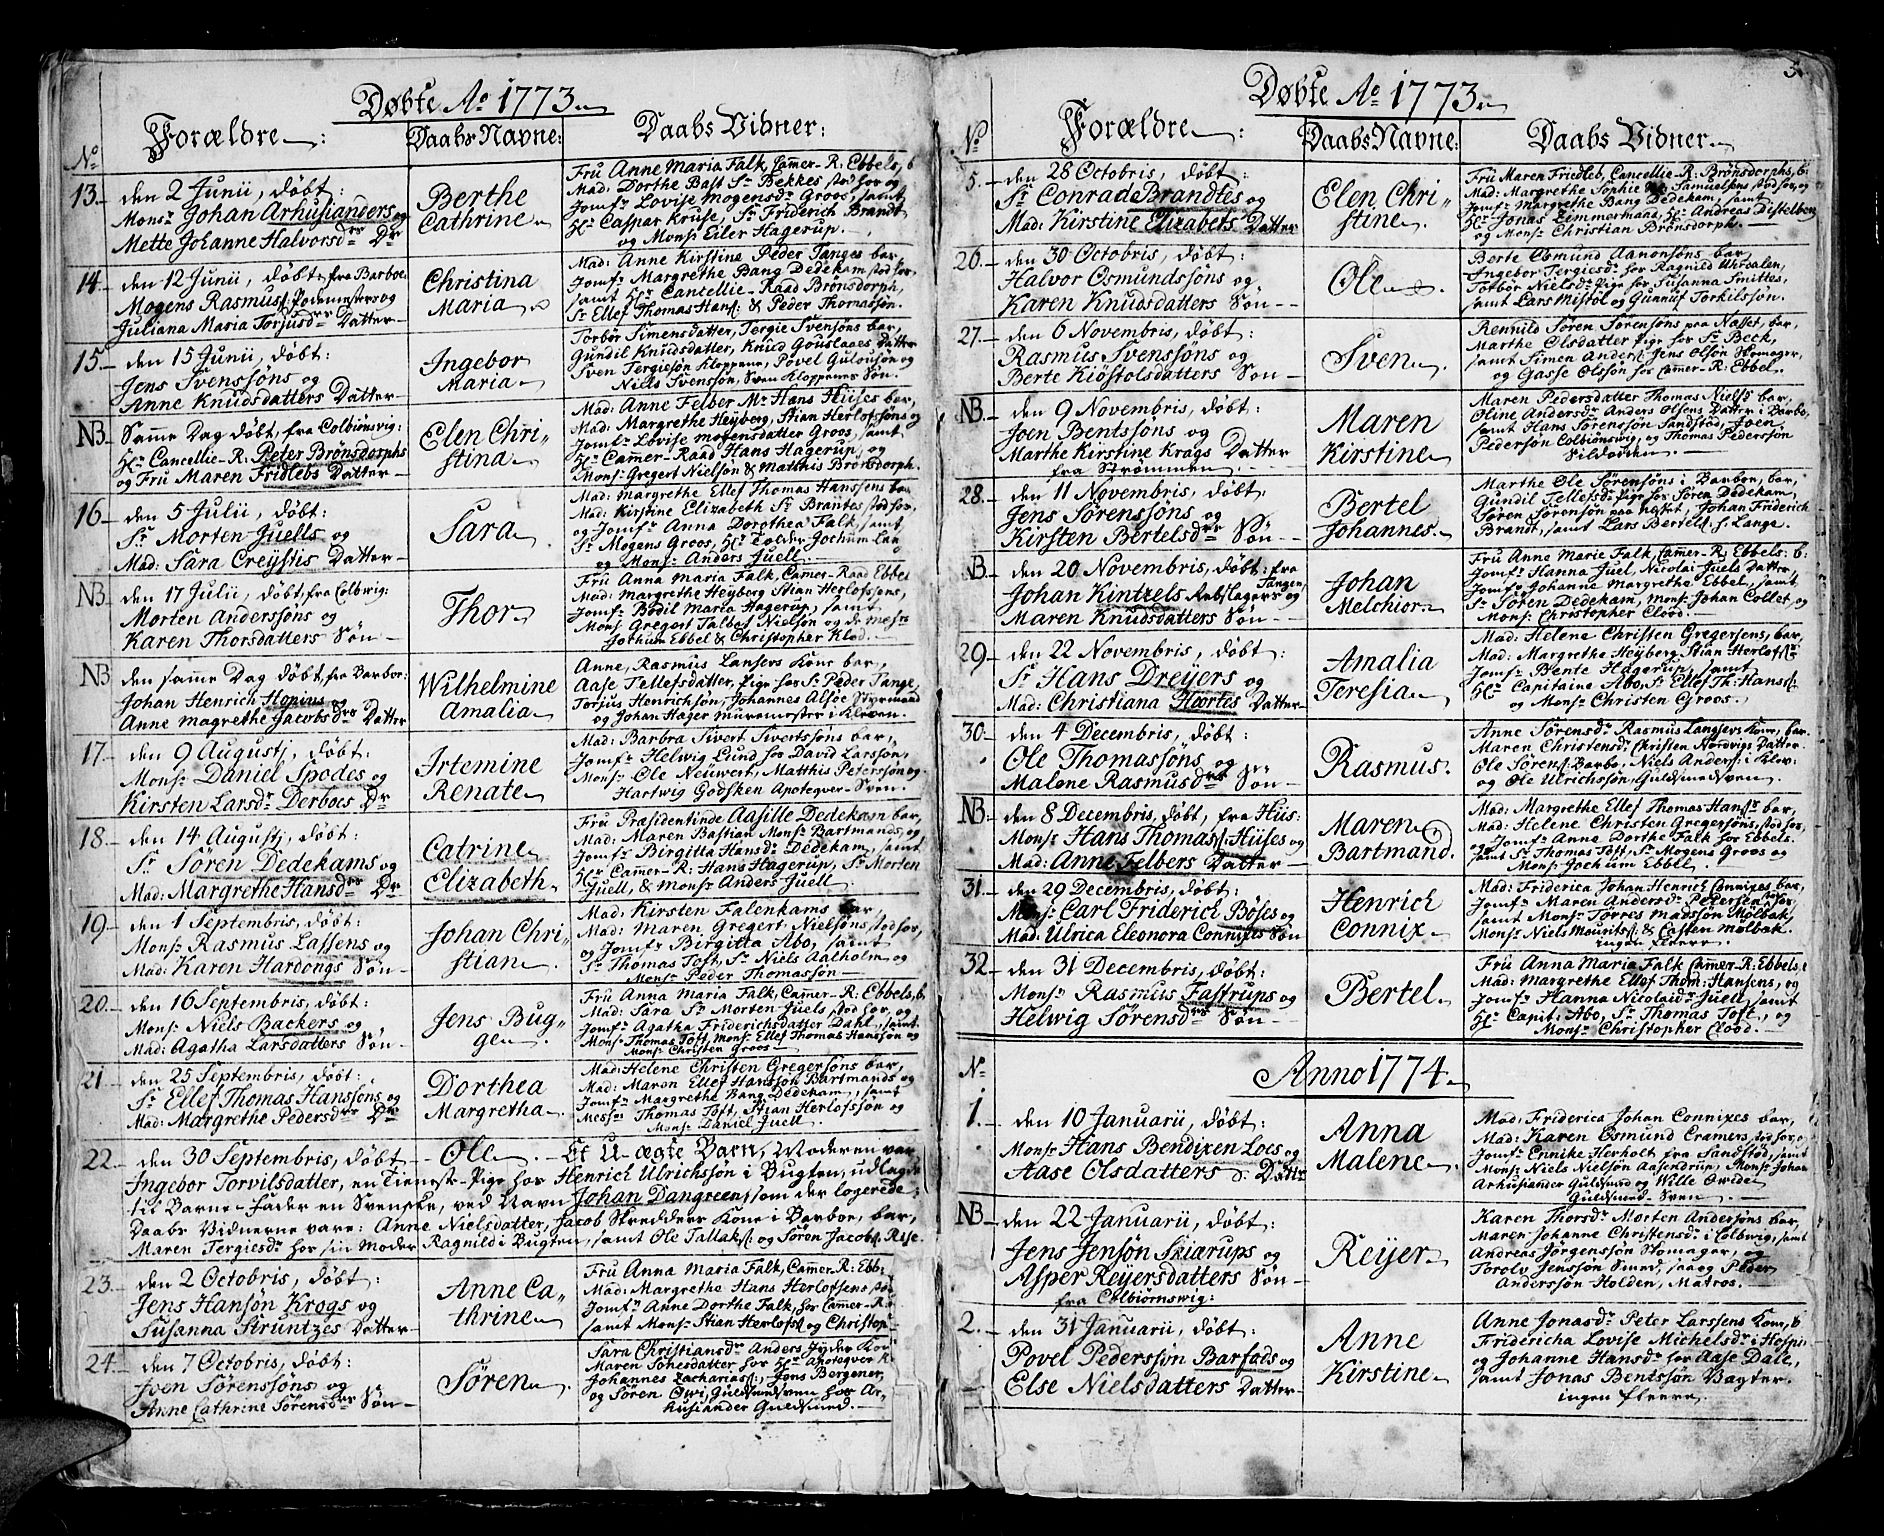 Døbte Ao 1773
No Forældre: Daabs Navne: Daabs Vidner:
13. den 2 Junii, døbt:
Monsr Johan Arhusianders og
Mette Johanne Halvorsdrs Dr
Berthe
Cathrine
Fru Anne Maria Falk, Camer-R: Ebbels, b
Mad: Dorthe Bast Sr Bekkes stod hos og
Jomfr Lovise Mogensdr Groos, samt
Hr Caspar Kruse, Sr Friderich Brandt
og Monsr Eiler Hagerup.
14. den 12 Junii, døbt fra Barboe:
Mogens Rasmus
Juliana Maria Torjusdrs Datter
Christina
Maria
Mad: Anne Kirstine Peder Tanges bar,
Jomfr Margrethe Bang Dedekam stod hos,
samt Hr Cancellie-Raad Brønsdorph,
Sr Ellef Thomas Hans: & Peder Thomassøn.
15. den 15 Junii, døbt:
Jens Svenssøns og
Anne Knudsdatters Datter
Ingebor
Maria
Torbor Simensdatter, Tergie Svensøns bar,
Gundil Knudsdatter, Knud Gouslaaes Datter
Sven Tergiesøn Kloppene, Povel Guloüsøn og
Niels Svensøn, Sven Kloppenes Søn.
NB. Samme Dag døbt, fra Colbiønsvig:
Hr Cancellie-R: Peter Brønsdorphs
og Fru Maren Fridlebs Datter
Elen Chri-
stina
Mad: Anne Felber Mr Hans Hüses bar,
Mad: Margrethe Heyberg, Stian Herlofsøns og
Jomfr Lovise Mogensdatter Groos, samt
Hr Camer-Raad Hans Hagerup, og
Monsr Gregert Nielsøn & Matthis Brønsdorph.
16. den 5 Julii, døbt:
Sr Morten Juells og
Mad: Sara Creystis Datter
Sara
Mad: Margrethe Ellef Thomas Hanssens bar
Mad: Kirstine Elizabeth Sr Brantes stod hos,
og Jomfr Anna Dorothea Falk, samt
Sr Mogens Groos, Hr Tolder Jochum Lan
og Monsr Anders Juell.
NB. den 17 Julii, døbt, fra Colbwig:
Morten Anderssøns og
Karen Thorsdatters Søn
Thor
Fru Anna Maria Falk, Camer-Raad Ebbel
Mad: Margrethe Heyberg Stian Herlofssøns,
Jomfr Bodil Maria Hagerup, samt
Monsr Gregert Talbot Nielsøn og de Messrs
Jochum Ebbel & Christopher Klod.
NB den samme Dag døbt, fra Barboe:
Johan Henrich Hopius og
Anne Magrethe Jacobsdrs Datter
Wilhelmine
Amalia
Anne, Rasmus Lansers Kone bar,
Aase Tellefsdatter, Pige hos Sr Peder Tange
Torjus Henrichsøn, Johannes Alsøe Styrmand
og Johan Hager Muremester i Kleven.
17. den 9 Augustj, døbt:
Monsr Daniel Spodes og
Kirsten Larsdr Derboes Dr
Irtemine
Renate
Mad: Barbra Sivert Sivertssøns bar,
Jomfr Helwig Lund hos David Larssøn,
Monsr Ole Neuwert, Matthis Petersøn og
Hartwig Godsken Apoteqver-Sven.
18. den 14 Augustj, døbt:
Sr Søren Dedekams og
Mad: Margrethe Hansdrs Dr
Catrine
Elizabeth
Fru Præsidentinde Aasille Dedekam bar,
Mad: Maren Bastian Monsr Bartmands og,
Jomfr Birgitta Hansdr Dedekam, samt
Hr Camer-R: Hans Hagerup, Sr Morten
Juell, & Monsr Anders Juell.
19. den 1 Septembris, døbt:
Monsr Rasmus Lassens og
Mad: Karen Hardongs Søn
Johan Chri-
stian
Mad: Kirsten Falenkams bar,
Mad: Maren Gregert Nielsøns stod hos,
og Jomfr Birgitta Abo, samt
Sr Thomas Toft, Sr Niels Aalholm og
Monsr Peder Thomassøn
20. den 16 Septembris, døbt:
Monsr Niels Backers og
Mad: Agatha Larsdatters Søn
Jens Bug-
ge
Fru Anna Maria Falk, Camer-R: Ebbels, b.
Mad: Sara Sr Morten Juels stod hos, og
Jomfr Agatha Friderichsdatter Dahl, samt
Monsr Thomas Toft, Monsr Ellef Thomas Hanssøn og
Monsr Christen Groos
21. den 25 Septembris, døbt:
Sr Ellef Thomas Hanssøns og
Mad: Margrethe Pedersdrs Dr
Dorthea
Margretha
Mad: Helene Christen Gregersøns bar,
Mad: Maren Ellef Hanssøn Bartmands og
Jomfr Margrethe Bang Dedekam, samt
Messrs Thomas Toft, Stian Herlofssøn og
Monsr Daniel Juell.
22. den 30 Septembris, døbt Ole. Et U-ægte Barn, Moderen var
Ingebor Torvilsdatter, en Tieneste-Pige hos Henrich Ulrichssøn i Bugten, udlagde
til Barne-Fader en Svenske, ved Navn Johan Dangreen, som der logerede:
Daabs Vidnerne vare: Anne Nielsdatter, Jacob Skredders Kone i Barboe, bar,
Maren Tergiesdr hos sin Moder Ragnild i Bugten, samt Ole Tallaks: og Søren Jacobs: Rise.
23. den 2 Octobris, døbt:
Jens Hansøn Krogs og
Susanna Struntzes Datter
Anne Ca-
thrine
Fru Anna Maria Falk, Camer-R: Ebb:
Mad: Margrethe Hans Herlofsens stod
Jomfr Anne Dorthe Falk, hos Camer-R:
samt Monsr Stian Herlofs: og Christop
24. den 7 Octobris, døbt:
Joen Sørenssøns og
Anne Cathrine Sørensdrs Søn
Søren
Sara Christiansdr Anders Jyder Kor
Maren Tohesdatter hos Hr Apoteqver
Johannes Zacharias:, Jens Bergener
og Søren Owi, Guldsmedsven hos Ar-
husiander Guldsmed.
5.
Døbte Ao 1773
No Forældre: Daabs Navne: Daabs Vidner
5. den 28 Octobris, døbt:
Sr Conrad Brandtes og
Mad: Kirstine Elizabets Datter
Elen Chri-
stine
Fru Maren Fridleb, Cancellie-R: Brønsdorphs, b:
Mad: Margrethe Sophie Samuelsens stod hos, og
Jomfr Margrethe Bang Dedekam, samt
Hr Jonas Zimmermann, Hr Andreas Distelben
og Monsr Christian Brønsdorph.
26. 30 Octobris, døbt:
Halvor Osmundssøns og
Karen Knudsdatters Søn
Ole
Berte Osmund Aanonsøns bar,
Ingebor Tergiesdr hos Ragnild
Torbor Nielsdr Pige hos Susanna Smittes,
samt Lars Mistol og Gunnuf Torkilsson.
27. den 6 Novembris, døbt:
Rasmus Svenssøns og
Berte Kiøstolsdatters Søn
Sven
Rennild Søren Sørensøns paa Næsset, bar,
Marthe Olsdatter Pige hos Sr Beck,
samt Simen Anders: Jens Olsøn Skomager,
og Gasse Olssøn hos Camer-R: Ebbel.
NB. den 9 Novembris, døbt:
Joen Bentssøns og
Marthe Kirstine Krags Datter
fra Strømmen
Maren
Kirstine
Maren Pedersdatter Thomas Niels: bar
Oline Andersdr Anders Olsens Datter i Barbo,
samt Hans Sørenssøn Sandstød, Joen
Pedersøn Colbiønswig og Thomas Pederssøn
Sildoden.
28. den 11 Novembris, døbt,
Jens Sørenssøns og
Kirsten Bertelsdrs Søn
Bertel
Johannes.
Marthe Ole Sørensøns i Barboe, bar,
Gundil Tellefsdr Pige hos Søren Dedekam,
Søren Sørensøn paa Næsset, Johan Friderich
Brandt, samt Lars Bertels: Lange.
NB. den 20 Novembris, døbt: fra
Tangen
Johan Kintzels Rebslagers og
Maren Knudsdatters Søn
Johan
Melchior
Fru Anne Marie Falk, Camer-R: Ebbels: b:
Jomfr Hanna Juel, Nicolai Juels Datter,
Jomfr Johanne Margrethe Ebbel, samt
Sr Søren Dedekam, Monsr Johan Collet, og
Monsr Christopher Clood.
29. den 22 Novembris, døbt:
Sr Hans Dreyers og
Mad: Christiana Hiortes Datter
Amalia
Teresia
Mad: Helene Christen Gregersens, bar,
Mad: Margrethe Heyberg Stian Herlofs:
Jomfr Bente Hagerup, samt
Hr Capitaine Abo, Sr Ellef Th: Hans:
og Monsr Christen Groos.
30. den 4 Decembris, døbt:
Ole Thomassøns og
Malene Rasmusdrs Søn
Rasmus.
Anne Sørensdr Rasmus Langsers Kone, bar.
Maren Christensdr Christen Nordvigs Datter.
Ole Sørens: Barbo, Niels Anders: i Klev:
og Ole Ulrichssøn, Guldsmedsven.
NB. den 8 Decembris, døbt, fra Hüs:
Monsr Hans Thomas: Hüses og
Mad: Anne Felbers Datter
Maren
Bartmand.
Mad: Margrethe Ellef Thomas Hans: bar,
Mad: Helene Christen Gregersøns, stod hos,
og Jomfr Anne Dorthe Falk hos Ebbels
samt Sr Thomas Toft, Sr Mogens Groos og
Monsr Jochum Ebbel
31. den 29 Decembris, døbt:
Monsr Carl Friderich Böses og
Mad: Ulrica Eleonora Connixes Søn
Henrich
Connix
Mad: Friderica Johan Henrich Connixes bar,
Jomfr Maren Andersdr Petersen hos,
samt Monsr Tørres Madsøn Mölbak,
Monsr Niels Mourits: & Casten Mølbak.
ingen fleere.
32. den 31 Decembris, døbt:
Monsr Rasmus Fastrups og
Helwig Sørensdrs Søn
Bertel
Fru Anna Maria Falk Camer-R: Ebbels,
Mad: Margrethe Ellef Thom: Hansens, og
Jomfr Hanna Nicolaidr Juell, samt
Hr Capit: Abo, Sr Thomas Toft, og
Monsr Christopher Clood.
No Anno 1774
1. den 10 Januarii, døbt:
Monsr Hans Bendixen Loes og
Aase Olsdatters Dattr
Anna
Malene
Mad: Friderica Johan Connixes bar,
Mad: Karen Osmund Cramers stod hos, og
Jomfr Ennike Herholt fra Sandstød, samt
Monsr Niels Nielsøn Aasendrup, Monsr Johan
Arhusiander Guldsmed og Wille Owide
Guldsmed-Sven.
NB. den 22 Januarii, døbt:
Jens Jensøn Skiarups og
Asper Reyersdatters Søn
fra Colbiørnswig:
Reijer
Karen Thorsdr Morten Andersøns bar,
Maren Johanne Christensdr i Colbwig, samt
Andreas Jørgenssøn Skomager, og
Torolv Jenssøn Smed, saa og Peder
Anderssøn Holden, Matros.
2. den 31 Januarii, døbt:
Povel Pederssøn Barfods og
Else Nielsdatters Datter
Anne
Kirstine
Anne Jonasdr Peter Larssens Kone, b
Fridericha Lovise Michelsdr i Hespi
og Johanne Hansdr hos Aase Dale,
samt Jonas Bentssøn Bøgter.
ingen fleere